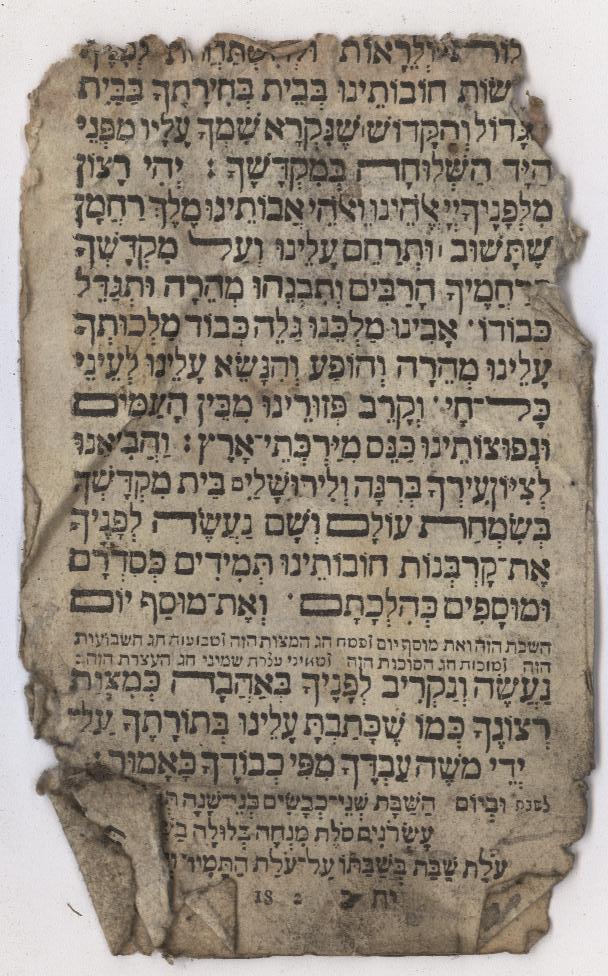 וְלֵרָאוֹת וּלְהִשְׁתַּחֲווֹת לְפָנֶיךָ
שׂוֹת חוֹבוֹתֵינוּ בְּבֵית בְּחִירָתֶךָ בַּבַּיִת
גָּדוֹל וְהַקָּדוֹשׁ שֶׁנִּקְרָא שִׁמְךָ עָלָיו מִפְּנֵי
הַיָּד הַשְּׁלוּחָה בְּמִקְדָּשֶׁךָ : יְהִי רָצוֹן
מִלְּפָנֶיךָ יְיָ אֱלֹהֵינוּ וֵאלֹהֵי אֲבוֹתֵינוּ מֶלֶךְ רַחֲמָן
שֶׁתָּשׁוּב וּתְרַחֵם עָלֵינוּ וְעַל מִקְדָּשְׁךָ
בְּרַחֲמֶיךָ הָרַבִּים וְתִבְנֵהוּ מְהֵרָה וּתְגַדֵּל
כְּבוֹדוֹ אָבִינוּ מַלְכֵּנוּ גַּלֵּה כְּבוֹד מַלְכוּתְךָ
עָלֵינוּ מְהֵרָה וְהוֹפַע וְהִנָּשֵׂא עָלֵינוּ לְעֵינֵי
כָּל־חָי וְקָרֵב פְּזוּרֵינוּ מִבֵּין הָעַמִּים
וּנְפוּצוֹתֵינוּ כַּנֵּס מִיַּרְכְּתֵי־אָרֶץ : וַהֲבִיאֵנוּ
לְצִיּוֹן עִירְךָ בְּרִנָּה וְלִירוּשָׁלַיִם בֵּית מִקְדָּשְׁךָ
בְּשִׂמְחַת עוֹלָם וְשָׁם נַעֲשֶׂה לְפָנֶיךָ
אֶת־קָרְבְּנוֹת חוֹבוֹתֵינוּ תְּמִידִים כְּסִדְרָם
וּמוּסָפִים כְּהִלְכָתָם וְאֶת־מוּסַף יוֹם
השבת הזה ואת מוסף יום לפסח חג המצות הזה לשבועות חג השבועות
הזה לסוכות חג הסוכות הזה לשמיני עצרת שמיני חג העצרת הזה
נַעֲשֶׂה וְנַקְרִיב לְפָנֶיךָ בְּאַהֲבָה כְּמִצְוַת
רְצוֹנֶךָ כְּמוֹ שֶׁכָּתַבְתָּ עָלֵינוּ בְּתוֹרָתֶךָ עַל־
יְדֵי מֹשֶׁה עַבְדֶּךָ מִפִּי כְבוֹדֶךָ כָּאָמוּר :
לשבת וּבְיוֹם הַשַּׁבָּת שְׁנֵי־כְבָשִׂים בְּנֵי־שָׁנָה
עֶשְׂרֹנִים סֹלֶת מִנְחָה בְּלוּלָה
עֹלַת שַׁבַּת בְּשַׁבַּתּוֹ עַל־עֹלַת הַתָּמִיד
18 2 יח ב